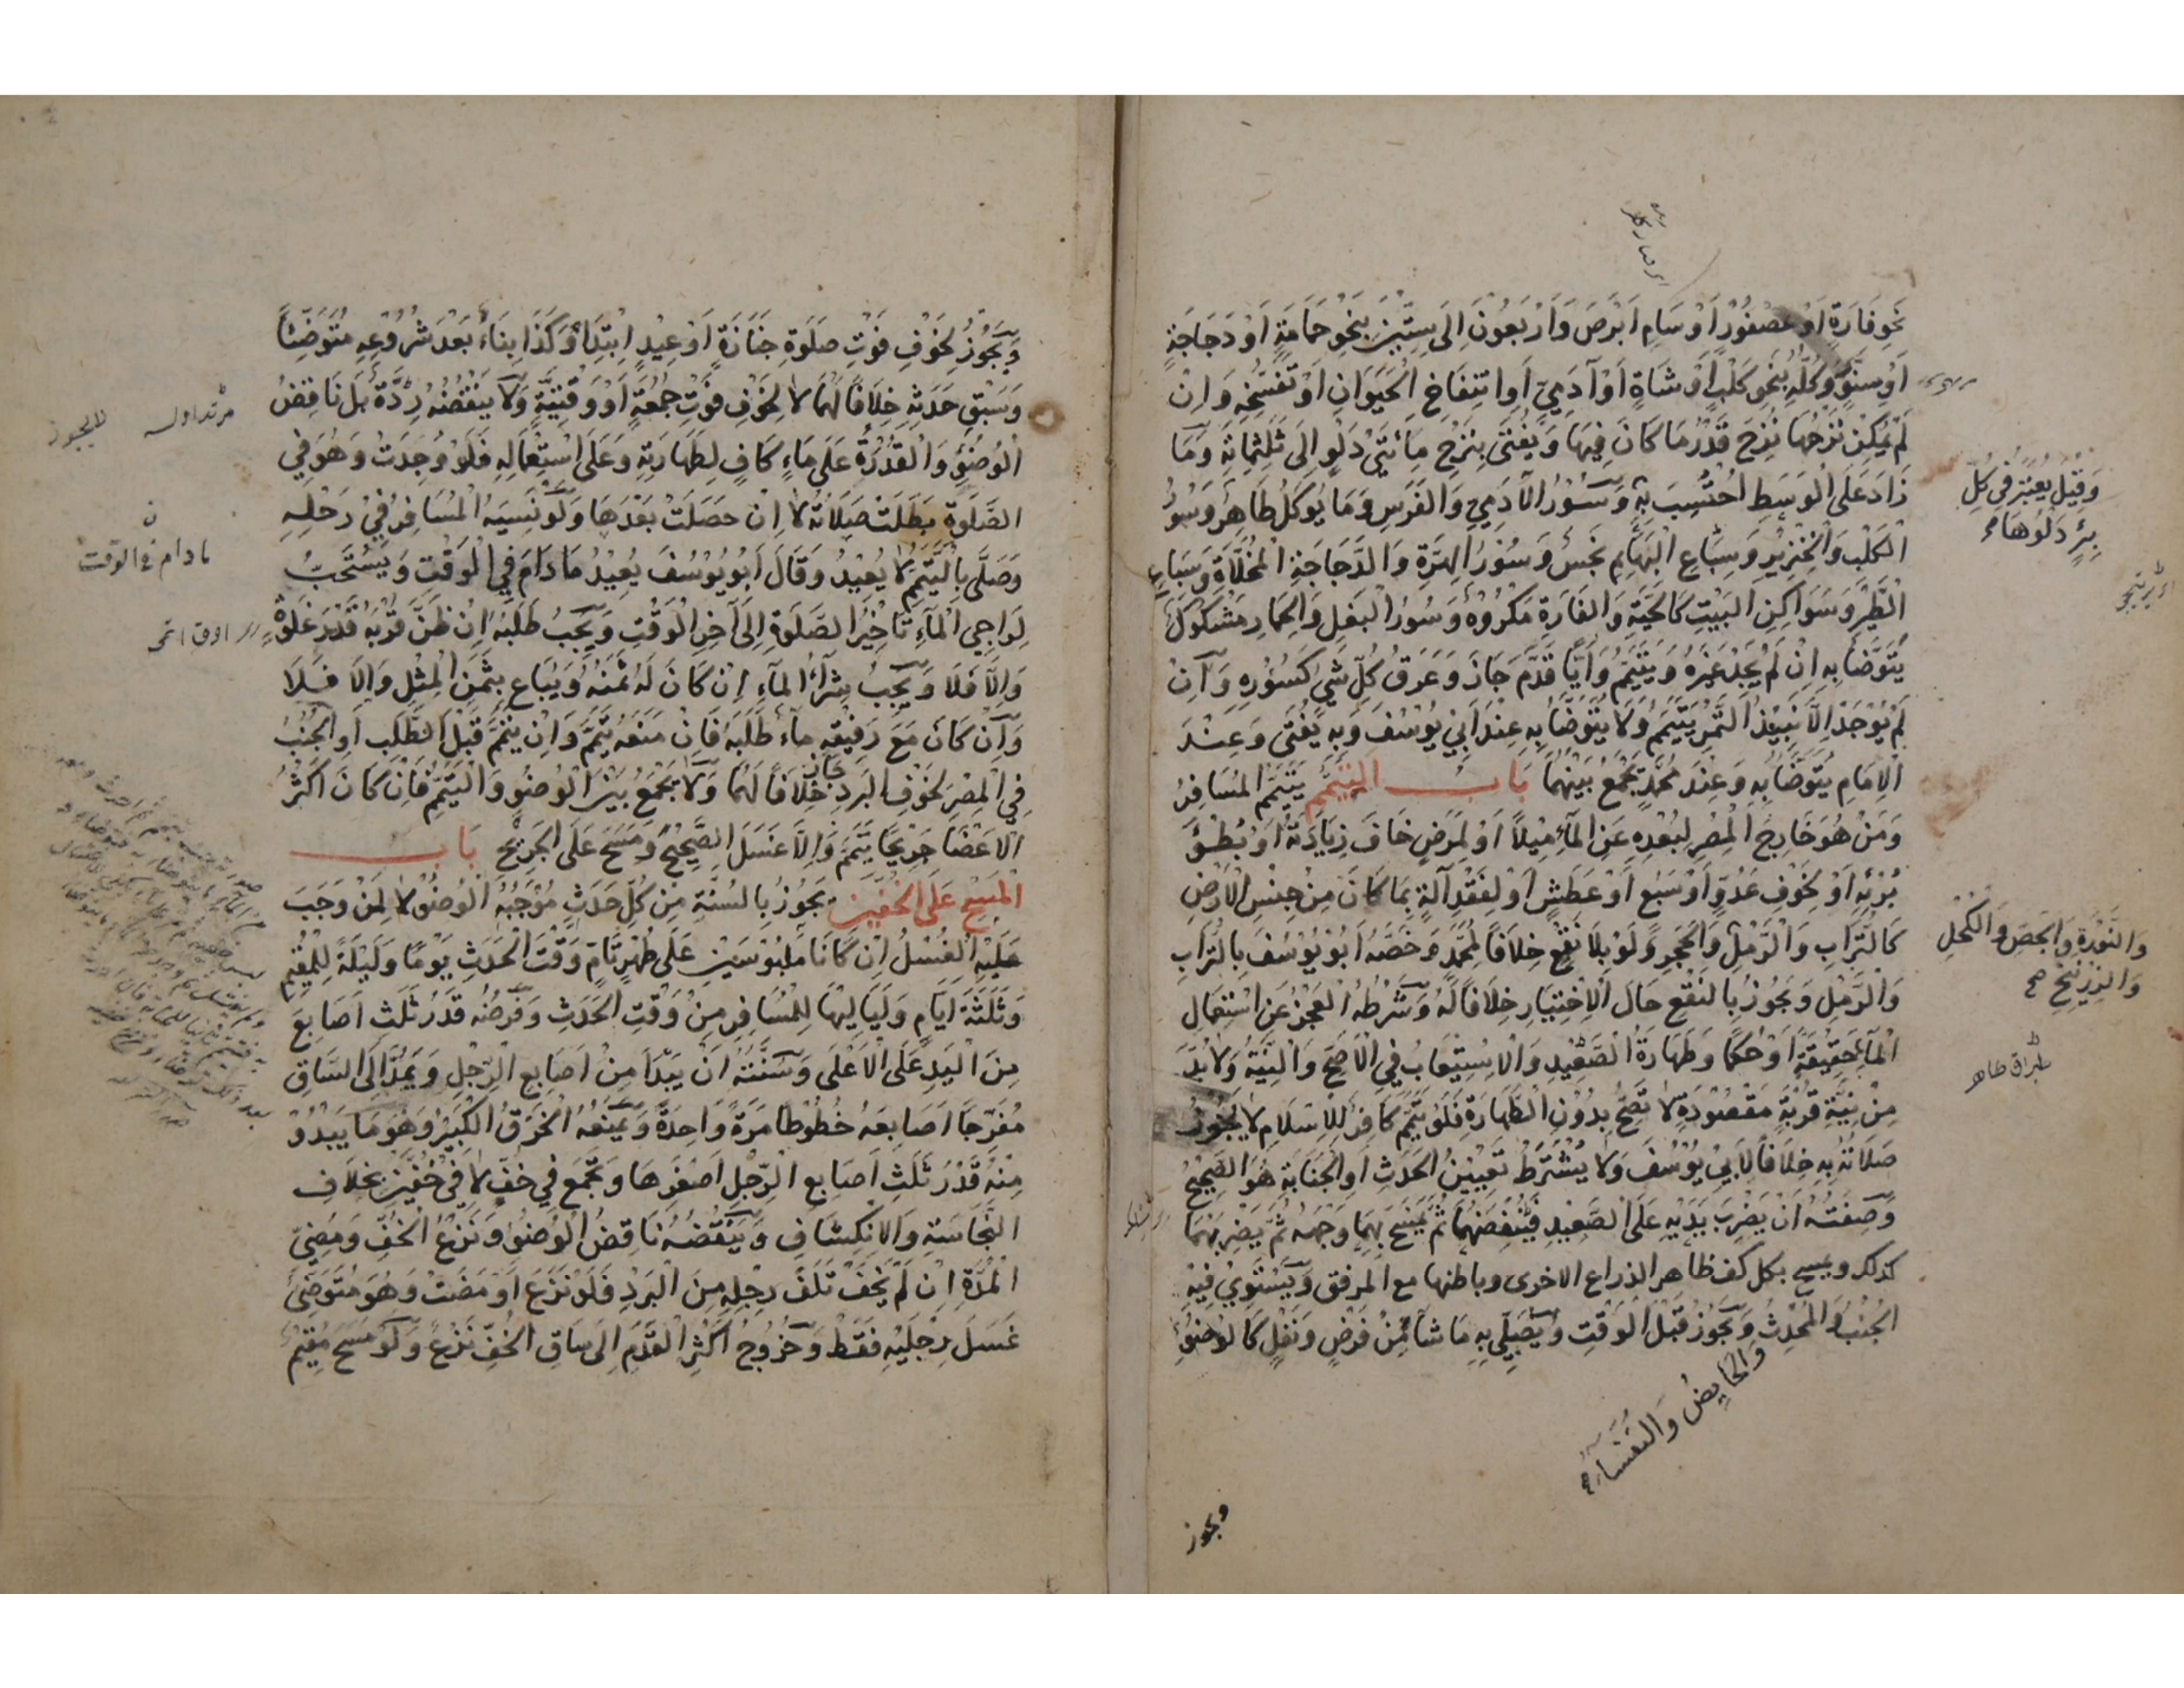 نَحْوِ فَارَةٍ اَوْ عُصْفُوْرٍ اَوْ سَامِ اَبْرَصَ وَاَرْبَعُوْنَ اِلَى سِتِّيْنَ بِنَحْوِ حَمَامَةٍ اَوْ دَجَاجَةٍ
اَوْ سِنَّوْرٍ وَكُلُّهُ بِنَحْوِ كَلْبٍ اَوْ شَاةٍ اَوْ آدَمِيٍّ اَوِ انْتِفَاخِ الْحَيَوَانِ اَوْ تَفَسُّخِهِ وَاِنْ
لَمْ يُمْكِنْ نَزْحُهَا نُزِحَ قَدْرُ مَا كَانَ فِيْهَا وَيُفْتَى بِنَزْحِ مِائَتَيْ دَلْوٍ اِلَى ثَلٰثِمِائَةٍ وَمَا
زَادَ عَلَى الْوَسَطِ اُحْتُسِبَ بِهِ وَسُؤْرُ الْآدَمِيِّ وَالْفَرَسِ وَمَا يُؤْكَلُ طَاهِرٌ وَسُؤْرُ
الْكَلْبِ وَالْخِنْزِيْرِ وَسِبَاعِ الْبَهَائِمِ نَجِسٌ وَسُؤْرُ الْهِرَّةِ وَالدَّجَاجَةِ الْمُخَلَّاةِ وَسِبَاعِ
الطَّيْرِ وَسَوَاكِنِ الْبَيْتِ كَالْحَيَّةِ وَالْفَارَةِ مَكْرُوْهٌ وَسُؤْرُ الْبَغْلِ وَالْحِمَارِ مَشْكُوْكٌ
يَتَوَضَّأُ بِهِ اِنْ لَمْ يَجِدْ غَيْرَهُ وَيَتَيَمَّمُ وَاَيًّا قَدَّمَ جَازَ وَعَرَقُ كُلِّ شَيْءٍ كَسُؤْرِهِ وَاِنْ
لَمْ يُوْجَدْ اِلَّا نَبِيْذُ التَّمْرِ يَتَيَمَّمُ وَلَا يَتَوَضَّأُ بِهِ عِنْدَ اَبِيْ يُوْسُفَ وَبِهِ يُفْتَى وَعِنْدَ
الْاِمَامِ يَتَوَضَّأُ بِهِ وَعِنْدَ مُحَمَّدٍ يَجْمَعُ بَيْنَهُمَا بَابُ التَّيَمُّمِ يَتَيَمَّمُ الْمُسَافِرُ
وَمَنْ هُوَ خَارِجَ الْمِصْرِ لِبُعْدِهِ عَنِ الْمَاءِ مِيْلًا اَوْ لِمَرَضٍ خَافَ زِيَادَتَهُ اَوْ بُطْؤَ
بُرْئِهِ اَوْ لِخَوْفِ عَدُوٍّ اَوْ سَبُعٍ اَوْ عَطَشٍ اَوْ لِفَقْدِ آلَةٍ بِمَا كَانَ مِنْ جِنْسِ الْاَرْضِ
كَالتُّرَابِ وَالرَّمْلِ وَالْحَجَرِ وَلَوْ بِلَا نَقْعٍ خِلَافًا لِمُحَمَّدٍ وَخَصَّهُ اَبُوْ يُوْسُفَ بِالتُّرَابِ
وَالرَّمْلِ وَيَجُوْزُ بِالنَّقْعِ حَالَ الْاِخْتِيَارِ خِلَافًا لَهُ وَشَرْطُهُ الْعَجْزُ عَنِ اسْتِعْمَالِ
الْمَاءِ حَقِيْقَةً اَوْ حُكْمًا وَطَهَارَةُ الصَّعِيْدِ وَالْاِسْتِيْعَابُ فِي الْاَصَحِّ وَالنِّيَّةُ وَلَا بُدَّ
مِنْ نِيَّةِ قُرْبَةٍ مَقْصُوْدَةٍ لَا تَصِحُّ بِدُوْنِ الطَّهَارَةِ فَلَوْ تَيَمَّمَ كَافِرٌ لِلْاِسْلَامِ لَا يَجُوْزُ
صَلَاتُهُ بِهِ خِلَافًا لِاَبِيْ يُوْسُفَ وَلَا يُشْتَرَطُ تَعْيِيْنُ الْحَدَثِ اَوِ الْجَنَابَةِ هُوَ الصَّحِيْحُ
وَصِفَتُهُ اَنْ يَضْرِبَ يَدَيْهِ عَلَى الصَّعِيْدِ فَيَنْفُضَهُمَا ثُمَّ يَمْسَحَ بِهِمَا وَجْهَهُ ثُمَّ يَضْرِبَهُمَا
كذلك ويمسح بكل كف ظاهر الذراع الاخرى وباطنها مع المرفق وَيَسْتَوِيْ فِيْهِ
الْجُنُبُ وَالْمُحْدِثُ وَيَجُوْزُ قَبْلَ الْوَقْتِ وَيُصَلِّيْ بِهِ مَا شَاءَ مِنْ فَرْضٍ وَنَفْلٍ كَالْوُضُوْءِ
وَالْحَايِضُ وَالنُّفَسَاءُ
ويجوز
وَقِيْلَ يُعْتَبَرُ فِيْ كُلِّ
بِئْرٍ دَلْوُهَا
وَالنُّوْرَةِ وَالْجِصِّ وَالْكُحْلِ
وَالزِّرْنِيْخِ صح
وَيَجُوْزُ لِخَوْفِ فَوْتِ صَلٰوةِ جَنَازَةٍ اَوْ عِيْدٍ اِبْتِدَاءً وَكَذَا بِنَاءً بَعْدَ شُرُوْعِهِ مُتَوَضِّئًا
وَسَبْقِ حَدَثِهِ خِلَافًا لَهُمَا لَا لِخَوْفِ فَوْتِ جُمُعَةٍ اَوْ وَقْتِيَّةٍ وَلَا يَنْقُضُهُ رِدَّةٌ بَلْ نَاقِضُ
الْوُضُوْءِ وَالْقُدْرَةُ عَلَى مَاءٍ كَافٍ لِطَهَارَتِهِ وَعَلَى اسْتِعْمَالِهِ فَلَوْ وُجِدَتْ وَهُوَ فِي
الصَّلٰوةِ بَطَلَتْ صَلَاتُهُ لَا اِنْ حَصَلَتْ بَعْدَهَا وَلَوْ نَسِيَهُ الْمُسَافِرُ فِيْ رَحْلِهِ
وَصَلَّى بِالتَّيَمُّمِ لَا يُعِيْدُ وَقَالَ اَبُوْ يُوْسُفَ يُعِيْدُ مَادَامَ فِي الْوَقْتِ وَيُسْتَحَبُّ
لِرَاجِي الْمَاءِ تَاْخِيْرُ الصَّلٰوةِ اِلَى آخِرِ الْوَقْتِ وَيَجِبُ طَلَبُهُ اِنْ ظَنَّ قُرْبَهُ قَدْرَ غَلْوَةٍ
وَاِلَّا فَلَا وَيَجِبُ شِرَاءُ الْمَاءِ اِنْ كَانَ لَهُ ثَمَنُهُ وَيُبَاعُ بِثَمَنِ الْمِثْلِ وَاِلَّا فَلَا
وَاِنْ كَانَ مَعَ رَفِيْقِهِ مَاءٌ طَلَبَهُ فَاِنْ مَنَعَهُ تَيَمَّمَ وَاِنْ تَيَمَّمَ قَبْلَ الطَّلَبِ اَوِ الْجُنُبُ
فِي الْمِصْرِ لِخَوْفِ الْبَرْدِ جَازَ خِلَافًا لَهُمَا وَلَا يَجْمَعُ بَيْنَ الْوُضُوْءِ وَالتَّيَمُّمِ فَاِنْ كَانَ اَكْثَرُ
الْاَعْضَا جَرِيْحًا يَتَيَمَّمُ وَاِلَّا غَسَلَ الصَّحِيْحَ وَمَسَحَ عَلَى الْجَرِيْحِ بَابُ
الْمَسْحِ عَلَى الْخُفَّيْنِ يَجُوْزُ بِالسُّنَّةِ مِنْ كُلِّ حَدَثٍ مُوْجَبُهُ الْوُضُوْءُ لَا لِمَنْ وَجَبَ
عَلَيْهِ الْغُسْلُ اِنْ كَانَا مَلْبُوْسَيْنِ عَلَى طُهْرٍ تَامٍّ وَقْتَ الْحَدَثِ يَوْمًا وَلَيْلَةً لِلْمُقِيْمِ
وَثَلٰثَةَ اَيَّامٍ وَلَيَالِيْهَا لِلْمُسَافِرِ مِنْ وَقْتِ الْحَدَثِ وَفَرْضُهُ قَدْرُ ثَلٰثِ اَصَابِعَ
مِنَ الْيَدِ عَلَى الْاَعْلَى وَسُنَّتُهُ اَنْ يَبْدَاَ مِنْ اَصَابِعِ الرِّجْلِ وَيَمُدَّ اِلَى السَّاقِ
مُفَرِّجًا اَصَابِعَهُ خُطُوْطًا مَرَّةً وَاحِدَةً وَيَمْنَعُهُ الْخَرْقُ الْكَبِيْرُ وَهُوَ مَا يَبْدُوْ
مِنْهُ قَدْرُ ثَلٰثِ اَصَابِعِ الرِّجْلِ اَصْغَرِهَا وَتُجْمَعُ فِيْ خُفٍّ لَا فِيْ خُفَّيْنِ بِخِلَافِ
النَّجَاسَةِ وَالْاِنْكِشَافِ وَيَنْقُضُهُ نَاقِضُ الْوُضُوْءِ وَنَزْعُ الْخُفِّ وَمُضِيُّ
الْمُدَّةِ اِنْ لَمْ يَخَفْ تَلَفَ رِجْلِهِ مِنَ الْبَرْدِ فَلَوْ نَزَعَ اَوْ مَضَتْ وَهُوَ مُتَوَضِّئٌ
غَسَلَ رِجْلَيْهِ فَقَطْ وَخُرُوْجُ اَكْثَرِ الْقَدَمِ اِلَى سَاقِ الْخُفِّ نَزْعٌ وَلَوْ مَسَحَ مُقِيْمٌ
مادام في الوقت